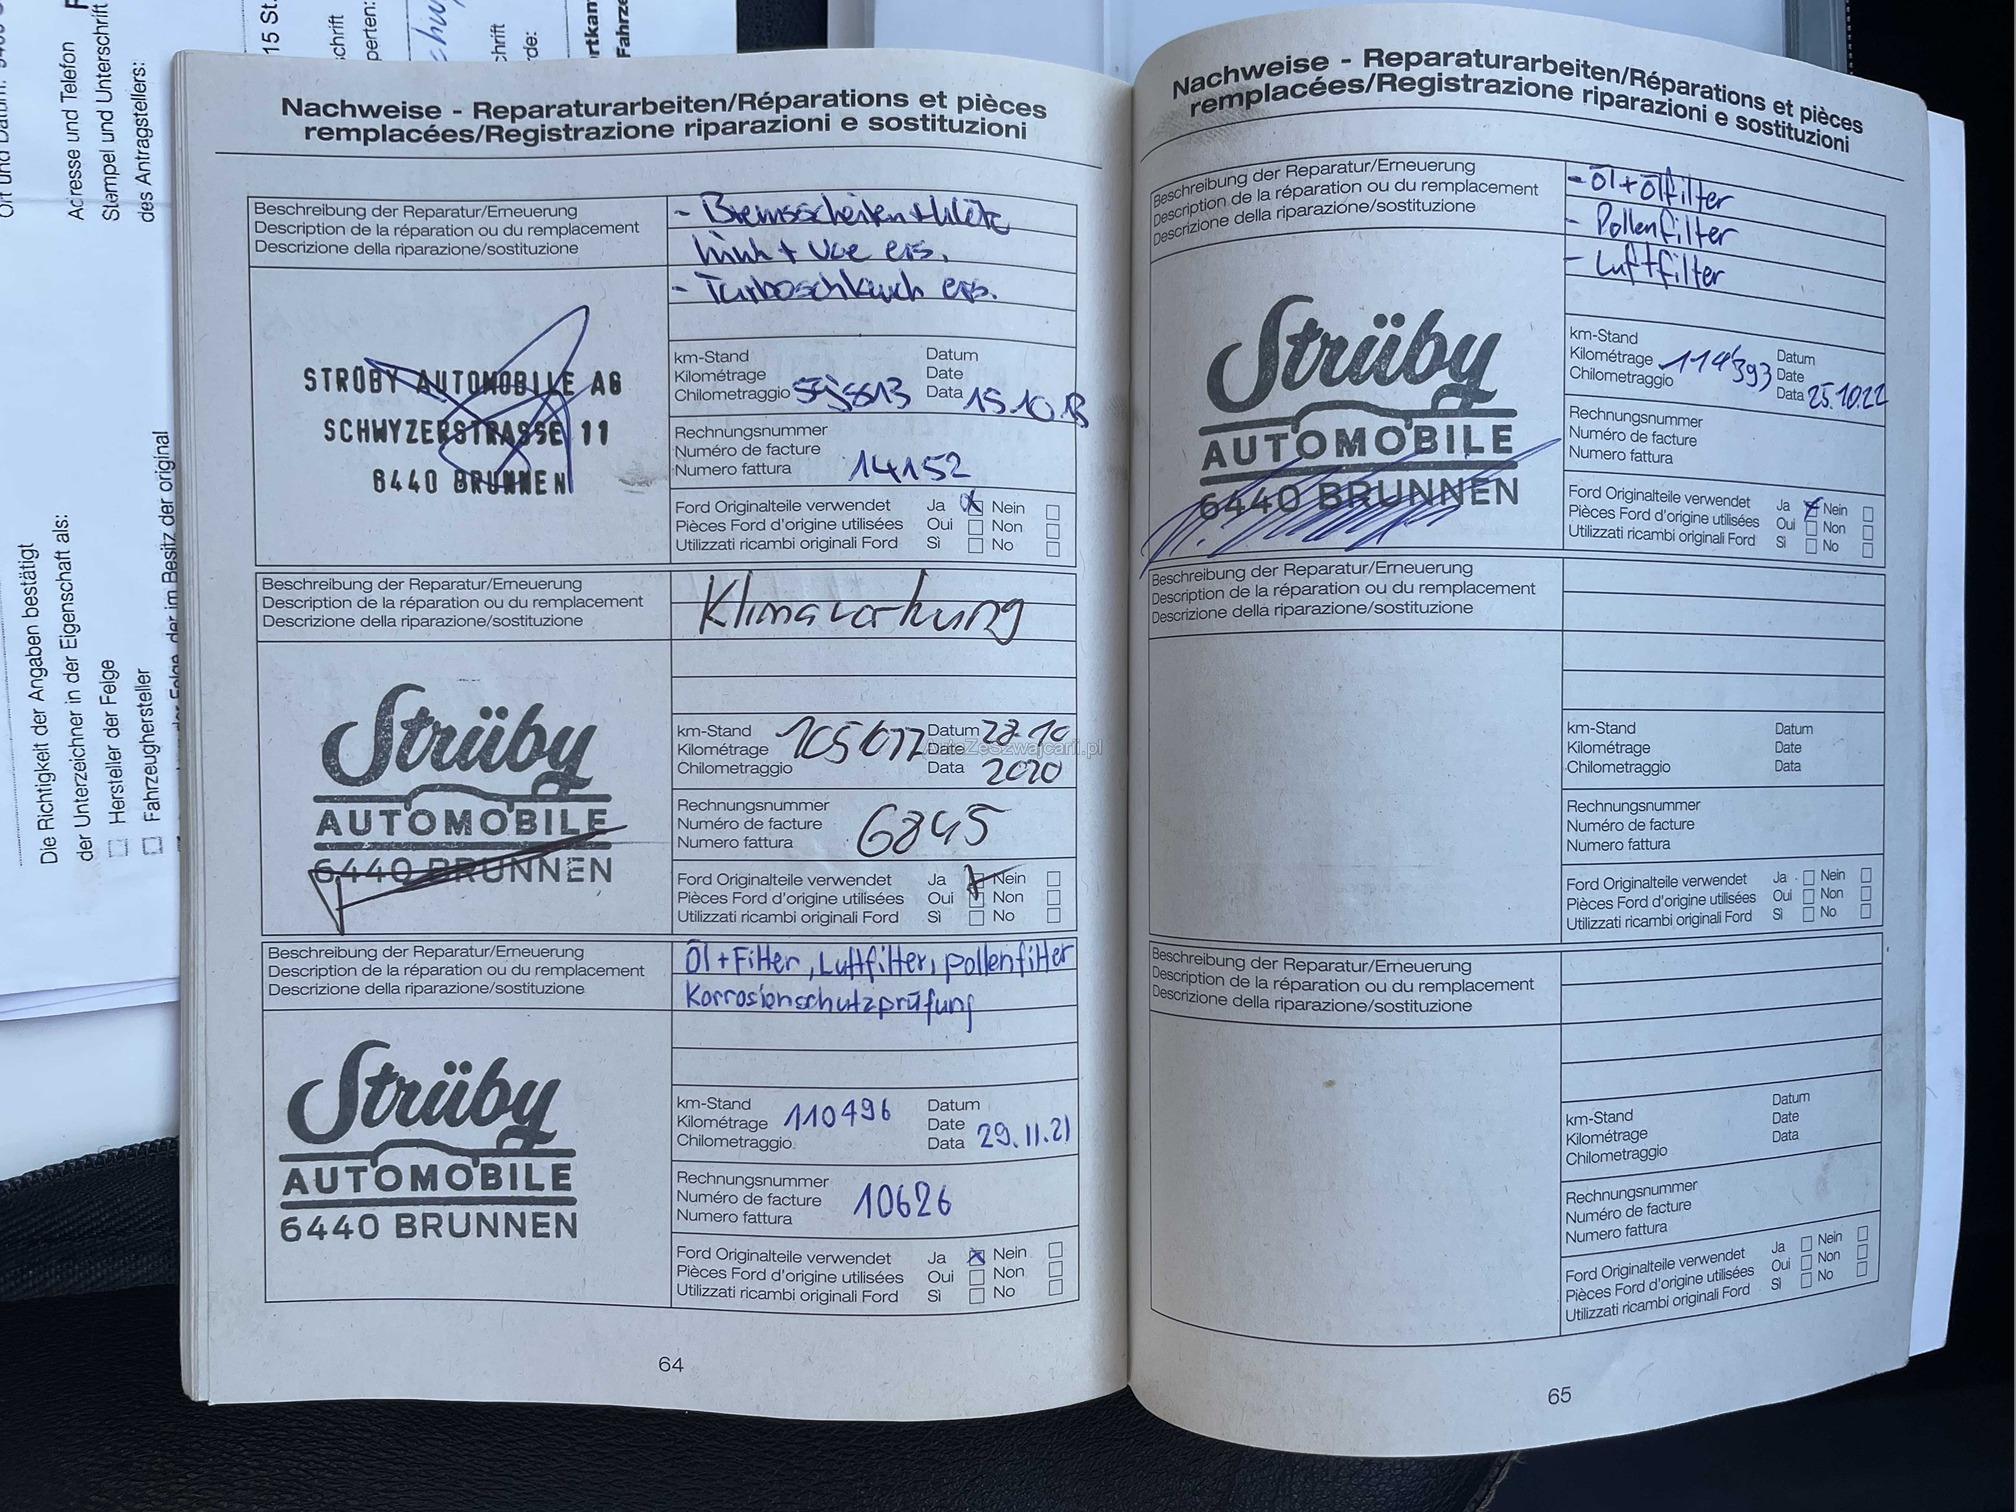 Nachweise - Reparaturarbeiten/Réparations et pièces
remplacées/Registrazione riparazioni e sostituzioni
Beschreibung der Reparatur/Erneuerung
Description de la réparation ou du remplacement
Descrizione della riparazione/sostituzione
- Bremsscheiben +
+ ers.
- Turboschlauch ers.
STRÜBY AUTOMOBILE AG
SCHWYZERSTRASSE 11
6440 BRUNNEN
km-Stand
Kilométrage
Chilometraggio
Datum
Date
Data 15.10.18
Rechnungsnummer
Numéro de facture
Numero fattura 14152
Ford Originalteile verwendet Ja Nein
Pièces Ford d'origine utilisées Oui Non
Utilizzati ricambi originali Ford Sì No
Beschreibung der Reparatur/Erneuerung
Description de la réparation ou du remplacement
Descrizione della riparazione/sostituzione
Strüby
AUTOMOBILE
6440 BRUNNEN
km-Stand
Kilométrage 105677
Chilometraggio
Datum
Date
Data 2020
AutoZeSzwajcarii.pl
Rechnungsnummer
Numéro de facture
Numero fattura 6845
Ford Originalteile verwendet Ja Nein
Pièces Ford d'origine utilisées Oui Non
Utilizzati ricambi originali Ford Sì No
Beschreibung der Reparatur/Erneuerung
Description de la réparation ou du remplacement
Descrizione della riparazione/sostituzione
Öl + Filter, Luftfilter, pollenfilter
Korrosionschutzprüfung
Strüby
AUTOMOBILE
6440 BRUNNEN
km-Stand
Kilométrage 110496
Chilometraggio
Datum
Date
Data 29.11.21
Rechnungsnummer
Numéro de facture
Numero fattura 10626
Ford Originalteile verwendet Ja Nein
Pièces Ford d'origine utilisées Oui Non
Utilizzati ricambi originali Ford Sì No
64
Nachweise - Reparaturarbeiten/Réparations et pièces
remplacées/Registrazione riparazioni e sostituzioni
Beschreibung der Reparatur/Erneuerung
Description de la réparation ou du remplacement
Descrizione della riparazione/sostituzione
- Öl + Ölfilter
- Pollenfilter
- Luftfilter
Strüby
AUTOMOBILE
6440 BRUNNEN
km-Stand
Kilométrage 114'393
Chilometraggio
Datum
Date
Data 25.10.22
Rechnungsnummer
Numéro de facture
Numero fattura
Ford Originalteile verwendet Ja Nein
Pièces Ford d'origine utilisées Oui Non
Utilizzati ricambi originali Ford Sì No
Beschreibung der Reparatur/Erneuerung
Description de la réparation ou du remplacement
Descrizione della riparazione/sostituzione
km-Stand
Kilométrage
Chilometraggio
Datum
Date
Data
Rechnungsnummer
Numéro de facture
Numero fattura
Ford Originalteile verwendet Ja Nein
Pièces Ford d'origine utilisées Oui Non
Utilizzati ricambi originali Ford Sì No
Beschreibung der Reparatur/Erneuerung
Description de la réparation ou du remplacement
Descrizione della riparazione/sostituzione
km-Stand
Kilométrage
Chilometraggio
Datum
Date
Data
Rechnungsnummer
Numéro de facture
Numero fattura
Ford Originalteile verwendet Ja Nein
Pièces Ford d'origine utilisées Oui Non
Utilizzati ricambi originali Ford Sì No
65
Adresse und Telefon
Stempel und Unterschrift
des Antragstellers:
Die Richtigkeit der Angaben bestätigt
der Unterzeichner in der Eigenschaft als:
Hersteller der Felge
Fahrzeughersteller
der Felge, der im Besitz der original